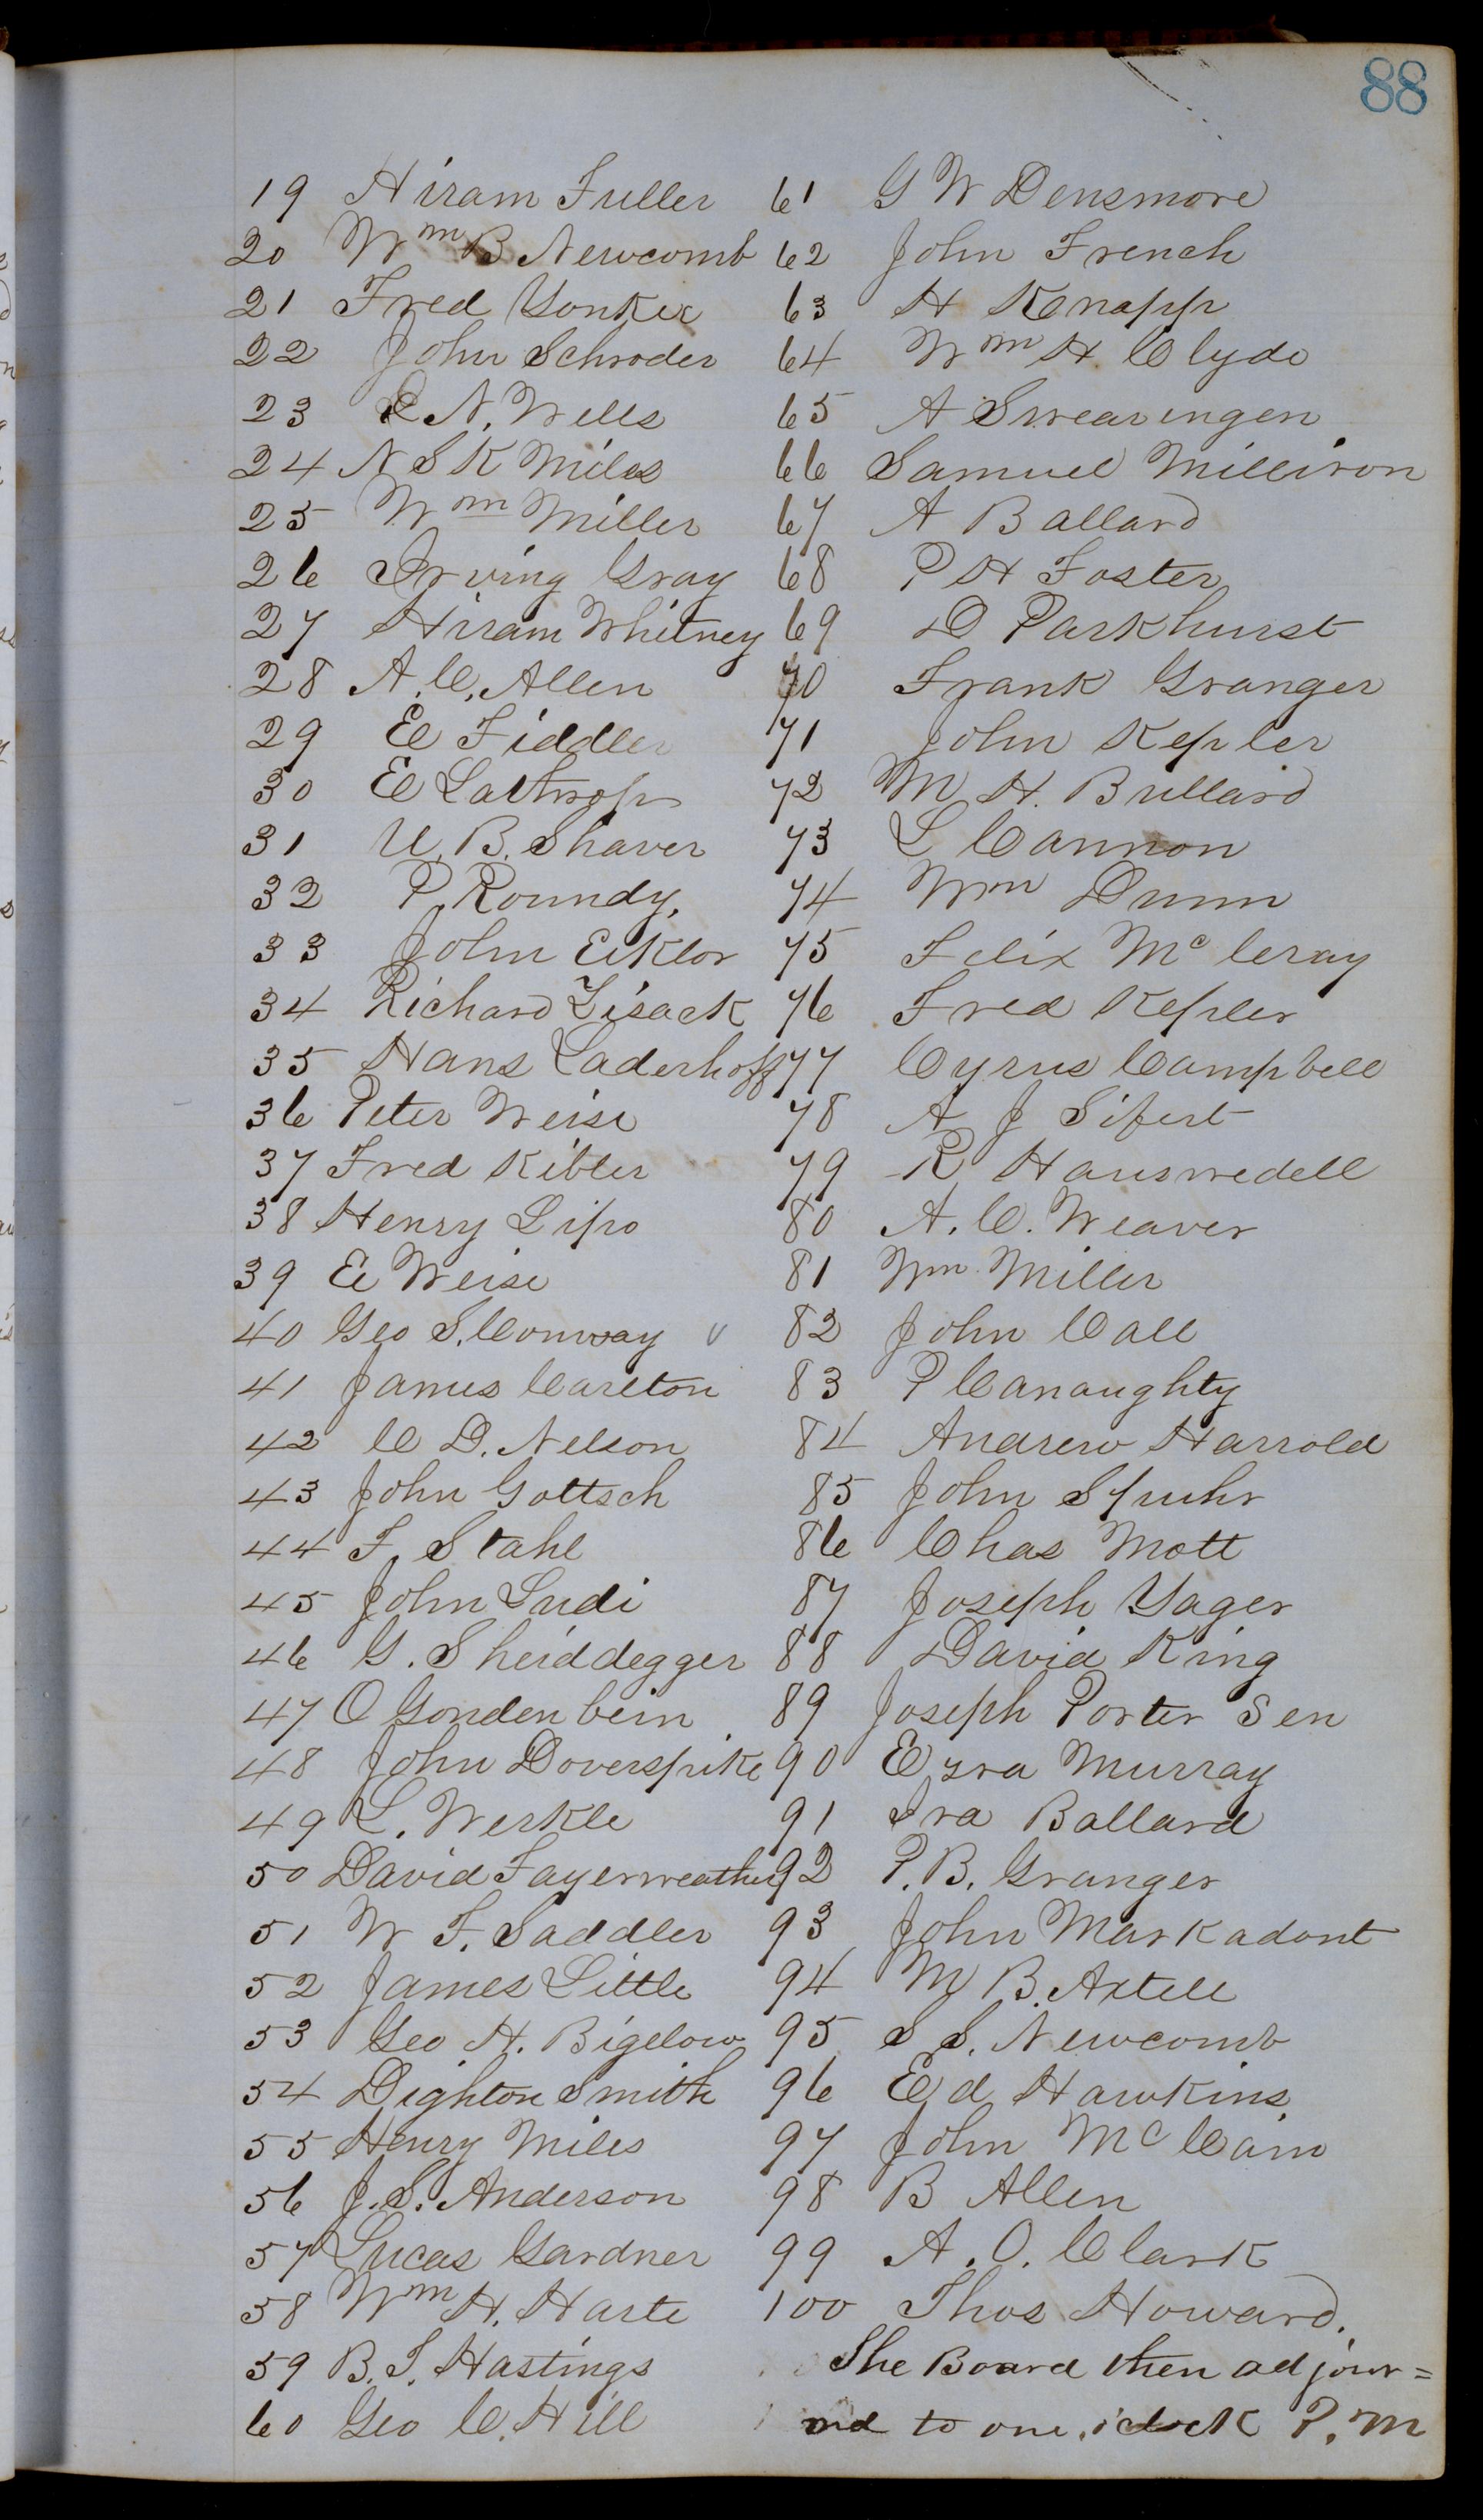 88
19 Hiram Fuller
20 Wm B Newcomb
21 Fred Yonker
22 John Schroder
23 L N. Wells
24 N S K Miles
25 Wm Miller
26 Irving Gray
27 Hiram Whitney
28 A. C. Allen
29 E Fiddler
30 E Lathrop
31 U. B. Shaver
32 P. Roundy.
33 John Eiklor
34 Richard Lisack
35 Hans Laderhoff
36 Peter Weise
37 Fred Kibler
38 Henry Lipo
39 E Weise
40 Geo S. Conway
41 James Carlton
42 C D. Nelson
43 John Gottsch
44 F. Stahl
45 John Ludi
46 G. Sheiddegger
47 O Gonden bein
48 John Doverspike
49 L. Werkle
50 David Fayerweather
51 W F. Saddler
52 James Little
53 Geo H. Bigelow
54 Dighton Smith
55 Henry Miles
56 J. S. Anderson
57 Lucas Gardner
58 Wm H. Harte
59 B. T. Hastings
60 Geo C. Hill
61 G W Densmore
62 John French
63 H Knapp
64 Wm H. Clyde
65 A Swearingen
66 Samuel Millison
67 A Ballard
68 P H Foster
69 D Parkhurst
70 Frank Granger
71 John Kepler
72 M H. Bullard
73 L Cannon
74 Wm Dunn
75 Felix Mc Cray
76 Fred Kepler
77 Cyrus Campbell
78 A J Sifert
79 R Hauswedell
80 A. C. Weaver
81 Wm Miller
82 John Call
83 P Canaughty
84 Andrew Harrold
85 John Spuhr
86 Chas Mott
87 Joseph Yager
88 David King
89 Joseph Porter Sen
90 Ezra Murray
91 Ira Ballard
92 P. B. Granger
93 John Markadont
94 M B. Axtell
95 S S. Newcomb
96 Ed Hawkins
97 John Mc Cain
98 B Allen
99 A. O. Clark
100 Thos Howard.
The Board then adjour=
ned to one. oclock P. M